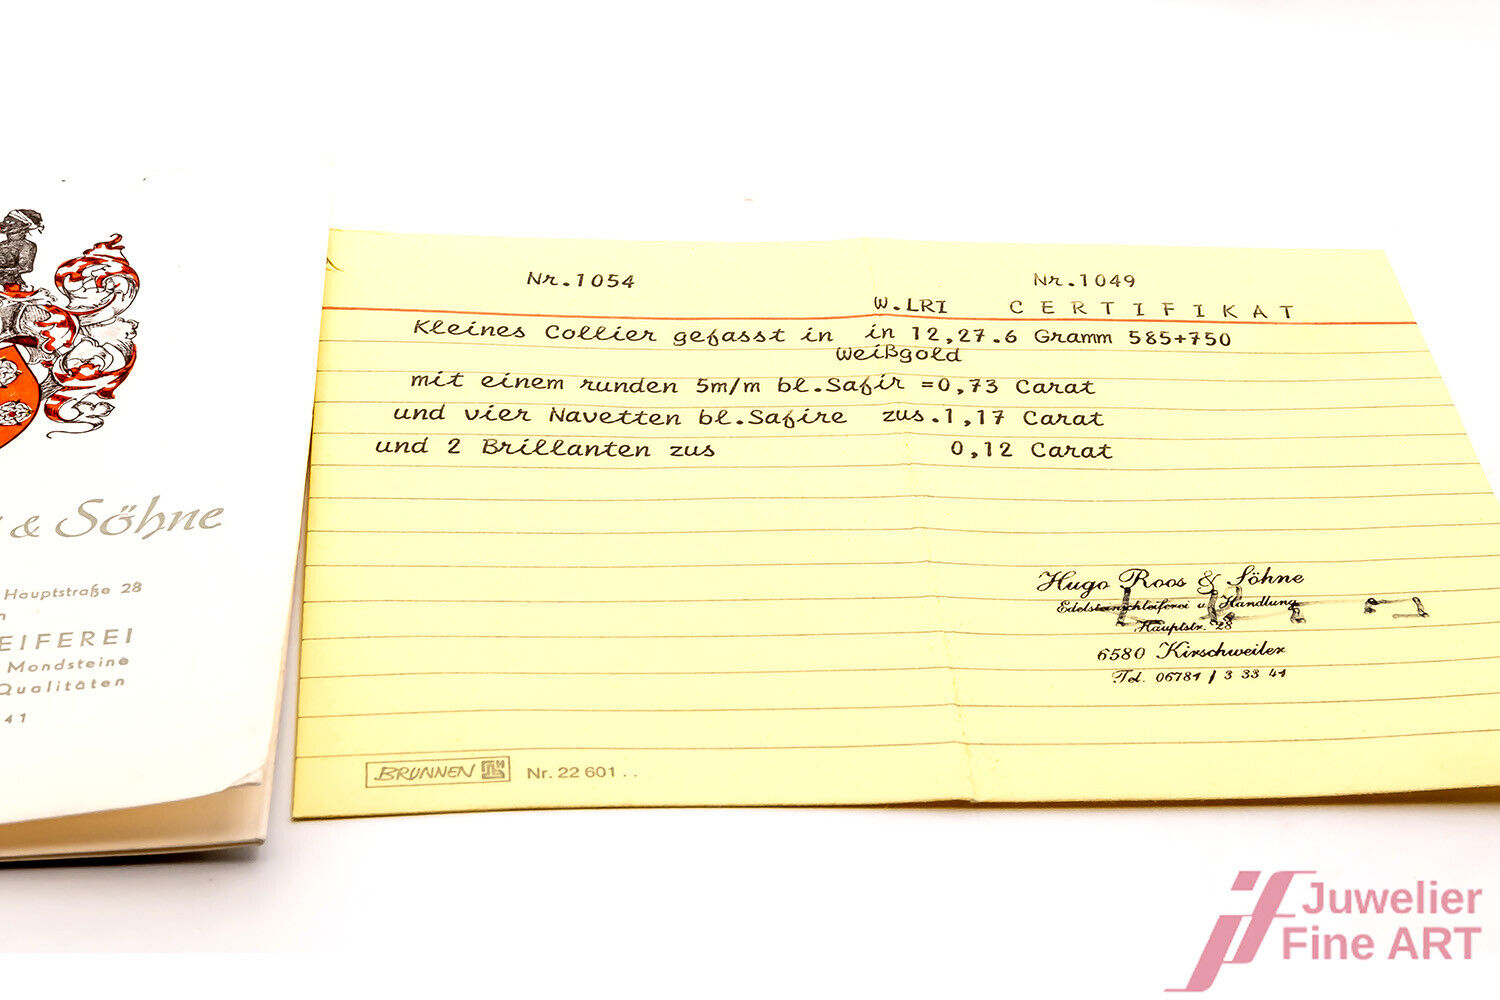 & Söhne
Hauptstraße 28
n
EIFEREI
Mondsteine
Qualitäten
41
Nr.1054
Nr.1049
W.LRI CERTIFIKAT
Kleines Collier gefasst in in 12,27.6 Gramm 585+750
Weißgold
mit einem runden 5m/m bl.Safir =0,73 Carat
und vier Navetten bl.Safire zus.1,17 Carat
und 2 Brillanten zus 0,12 Carat
Hugo Roos & Söhne
Edelsteinschleiferei u. Handlung
Hauptstr. 28
6580 Kirschweiler
Tel. 06781 / 3 33 41
BRUNNEN Nr. 22 601 . .
Juwelier
Fine ART